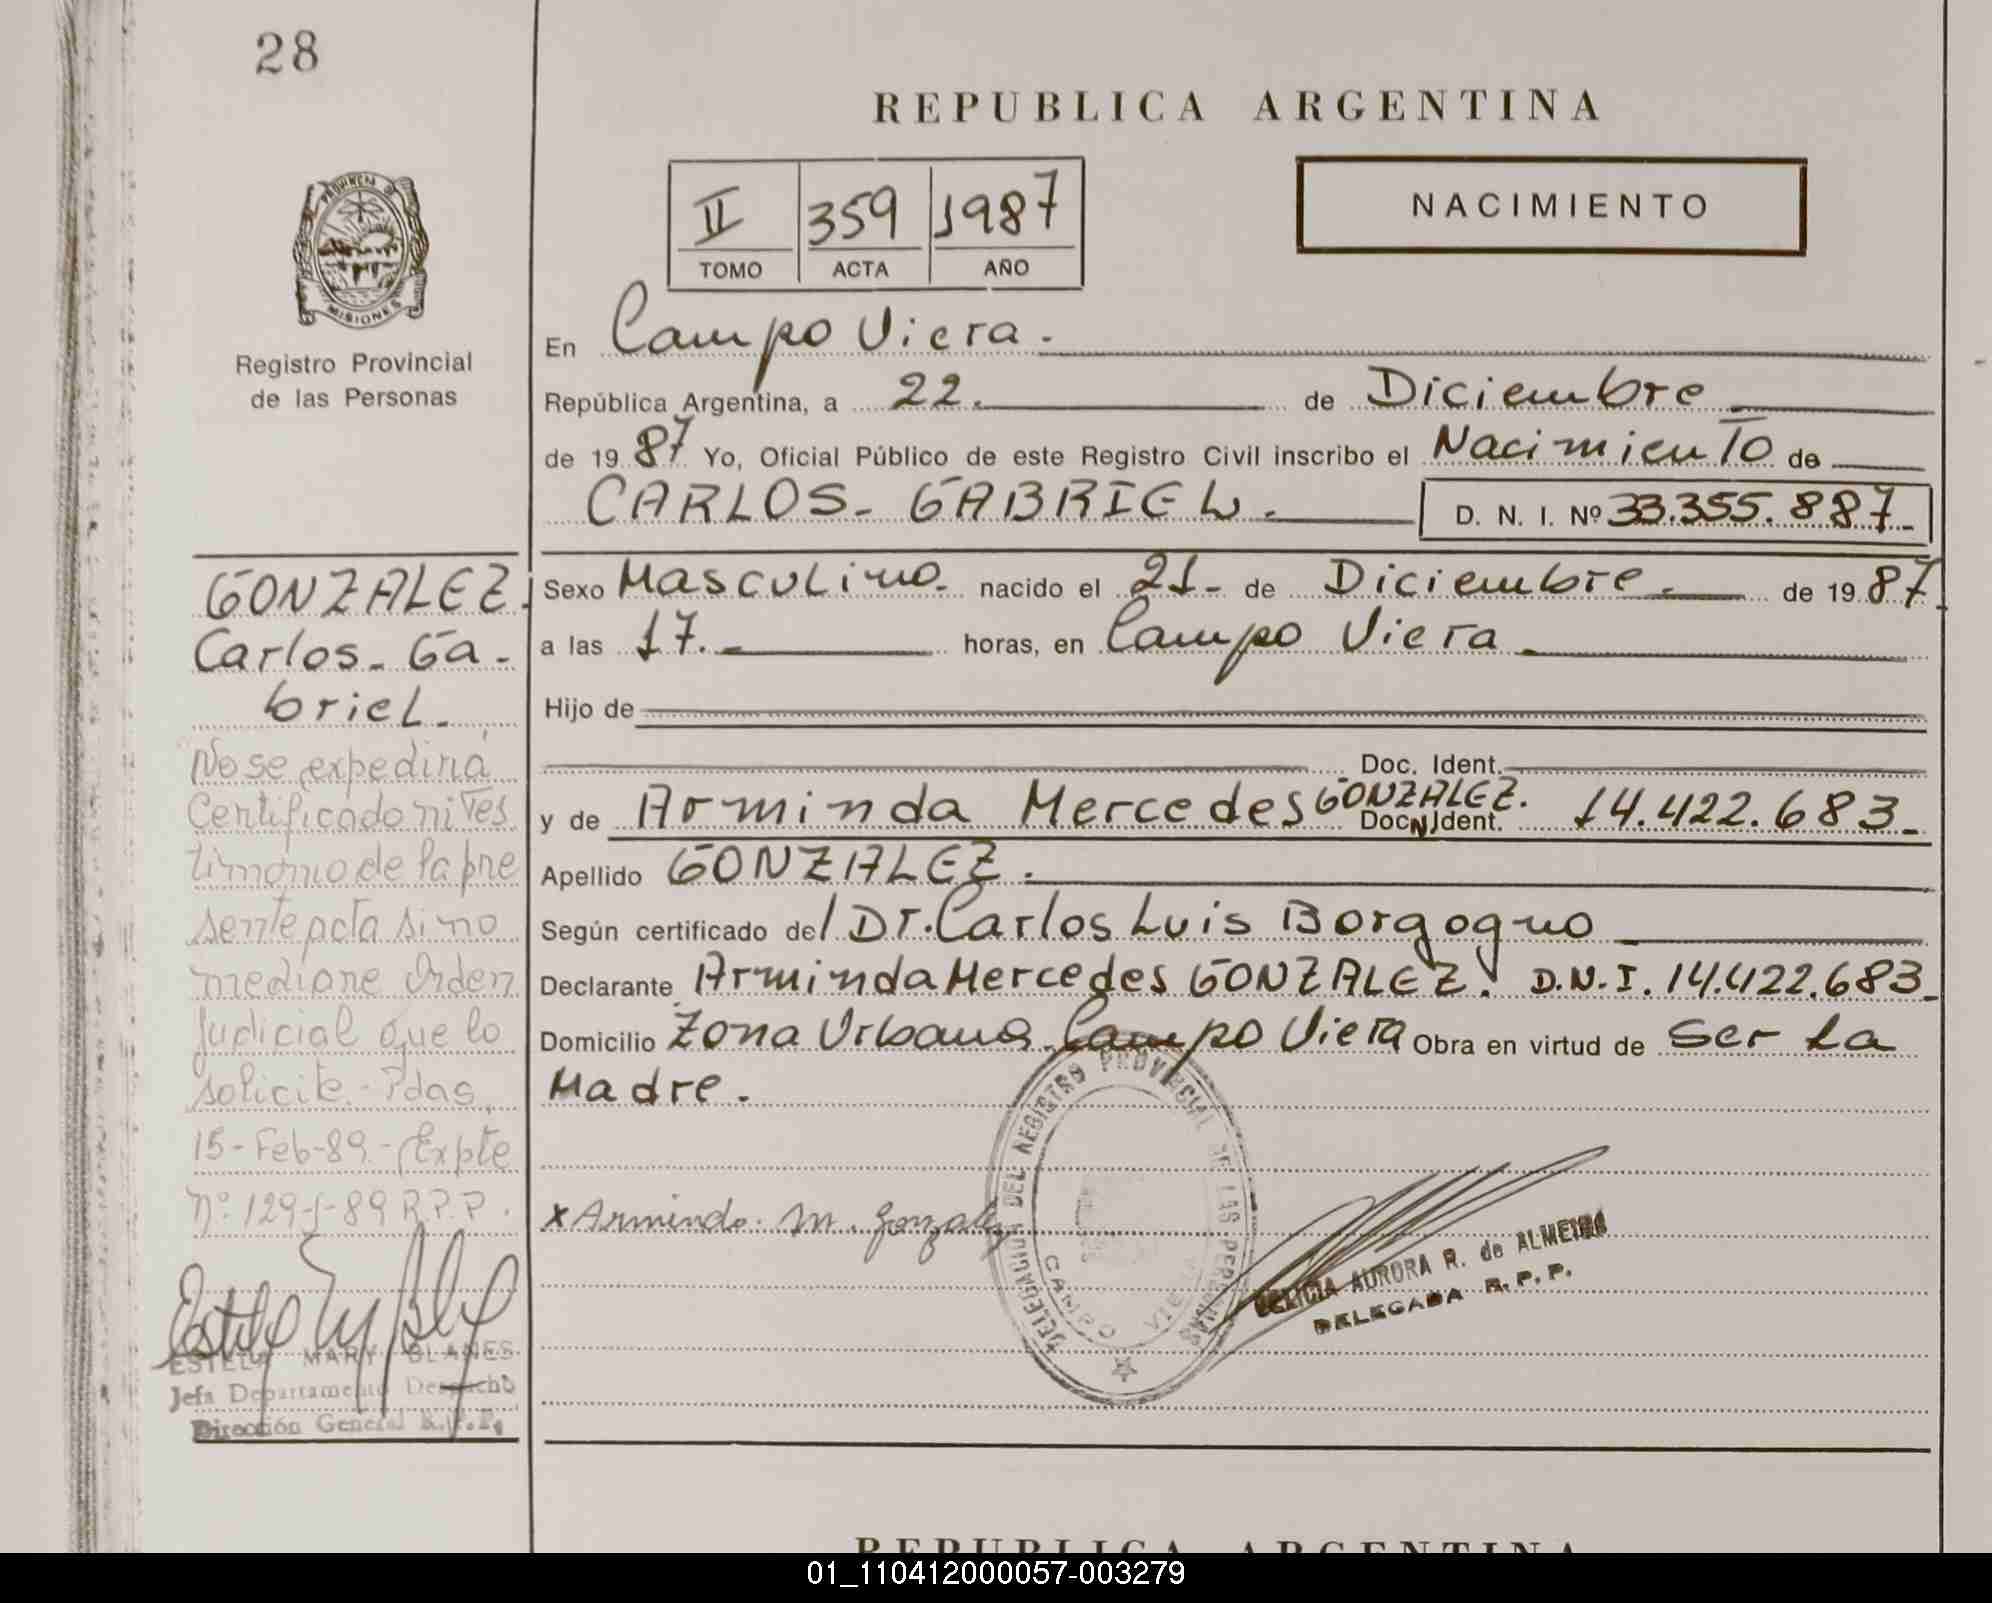 28
REPUBLICA ARGENTINA
NACIMIENTO
II 359 1987
TOMO ACTA AÑO
PROVINCIA DE
MISIONES
Registro Provincial
de las Personas
En Campo Viera.
República Argentina, a 22. de Diciembre
de 1987 Yo, Oficial Público de este Registro Civil inscribo el Nacimiento de
CARLOS- GABRIEL. D. N. I. Nº 33.355.887
Sexo Masculino. nacido el 21- de Diciembre. de 1987
a las 17. horas, en Campo Viera
Hijo de
Doc. Ident.
y de Arminda Mercedes GONZALEZ. Doc. Ident. 14.422.683
Apellido GONZALEZ.
Según certificado del Dr. Carlos Luis Borgogno
Declarante Arminda Mercedes GONZALEZ. D.N.I. 14.422.683
Domicilio Zona Urbana Campo Viera Obra en virtud de Ser La
Madre.
x Arminda M. Gonzalez
DELEGACION DEL REGISTRO PROVINCIAL DE LAS PERSONAS
CAMPO VIERA
AURORA R. de ALMEIDA
DELEGADA R. P. P.
GONZALEZ.
Carlos- Ga-
briel.
No se expedirá
Certificado ni Tes
timonio de la pre
sente acta si no
mediane Orden
Judicial que lo
solicite.- Pdas,
15-Feb-89.- Expte
Nº 129-J-89 R.P.P.
ESTELA MARY BLANES
Jefa Departamento Despacho
Dirección General R.P.P.
REPUBLICA ARGENTINA
01_110412000057-003279